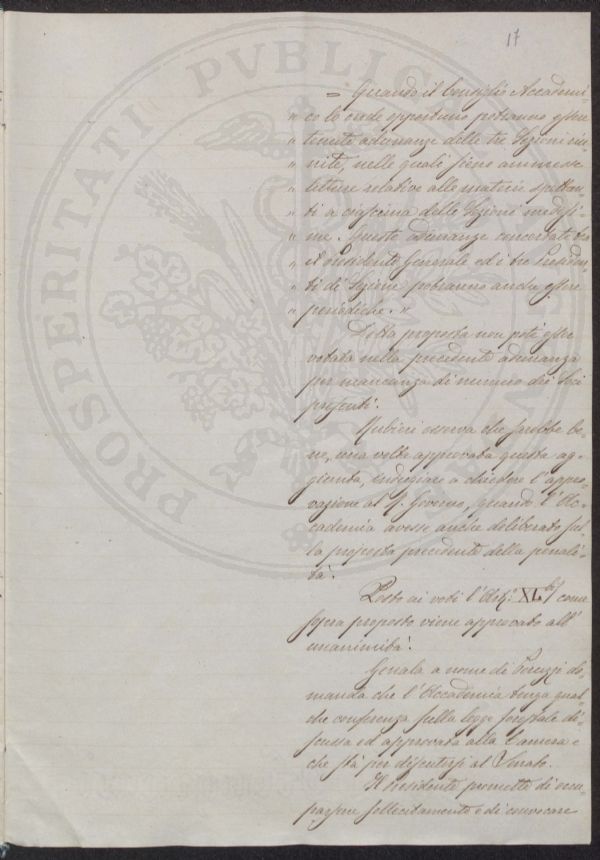 17
= Quando il Consiglio Accademi-
" co lo crede opportuno potranno essere
" tenute adunanze delle tre Sezioni riu-
" nite, nelle quali sieno ammesse
" letture relative alle materie spettan-
" ti a ciascuna delle Sezioni medesi-
" me. Queste adunanze concertate tra
" il Presidente Generale ed i tre Presiden-
" ti di Sezione potranno anche essere
" periodiche. "
Detta proposta non potè essere
votata nella precedente adunanza
per mancanza di numero dei Soci
presenti.
Rubieri osserva che sarebbe be-
ne, una volta approvata questa ag-
giunta, indugiare a chiedere l'appro-
vazione al R. Governo, quando l'Ac-
cademia avesse anche deliberato sul-
la proposta precedente della penali-
tà.
Posto ai voti l'Art.° XL bis come
sopra proposto viene approvato all'
unanimità.
Genala a nome di Peruzzi do-
manda che l'Accademia tenga qual-
che conferenza sulla legge forestale di-
scussa ed approvata alla Camera e
che sta per discutersi al Senato.
Il Presidente promette di occu-
parsene sollecitamente e di convocare
PROSPERITATI PVBLICAE